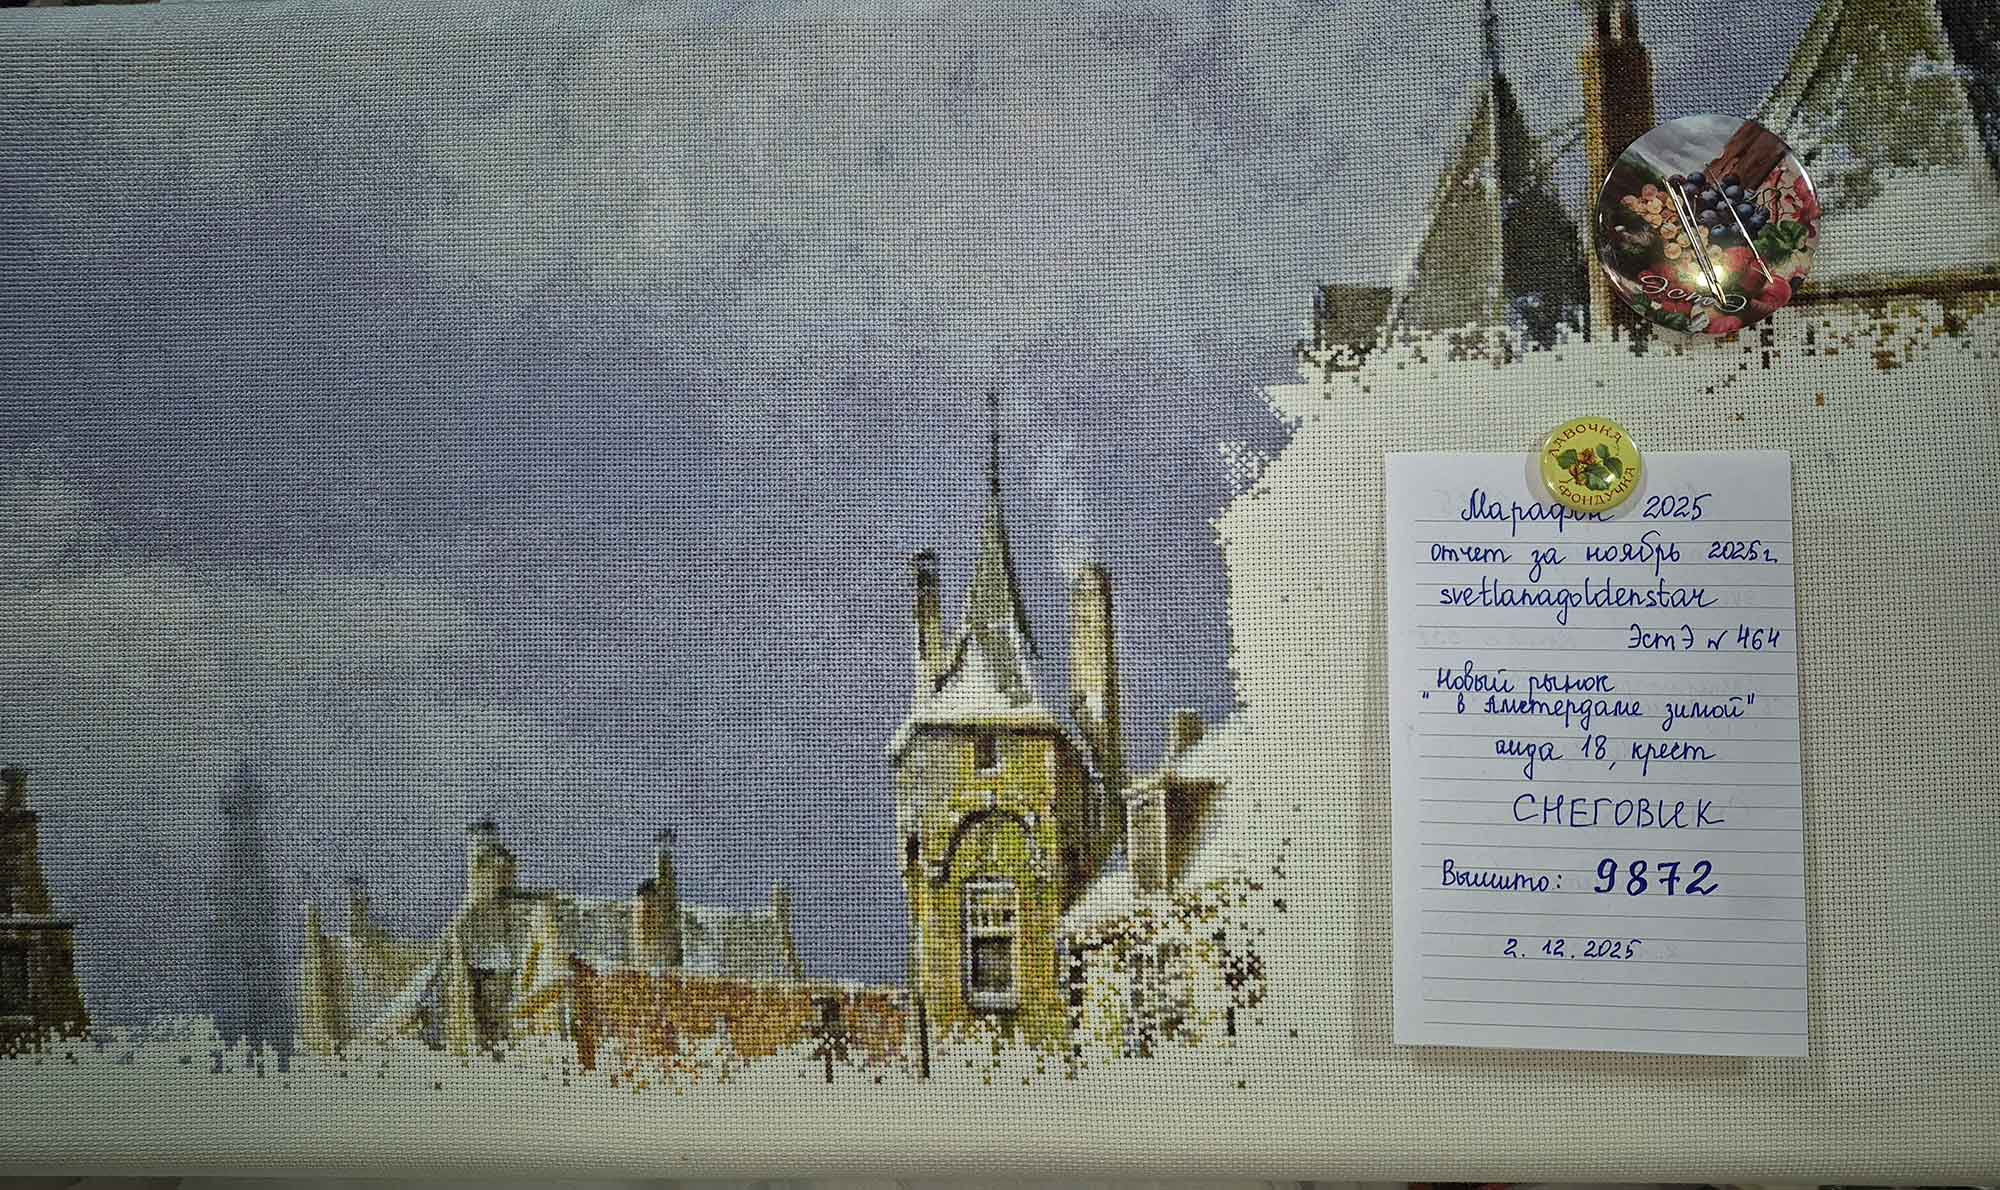 ЭстЭ
ЛАВОЧКА
ФОНДУЧКА
Марафон 2025
отчет за ноябрь 2025г.
svetlanagoldenstar
ЭстЭ № 464
"Новый рынок
в Амстердаме зимой"
аида 18, крест
СНЕГОВИК
Вышито: 9872
2.12.2025